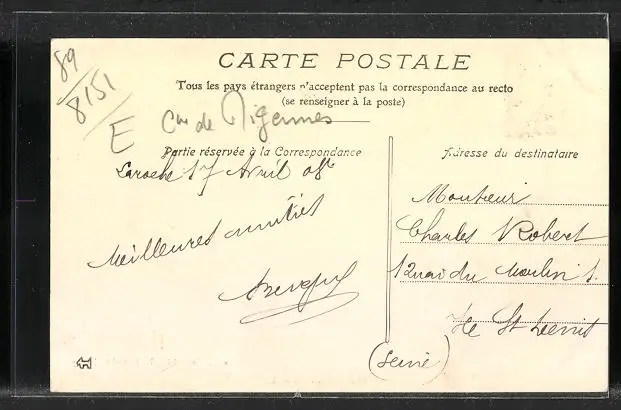 CARTE POSTALE
Tous les pays étrangers n'acceptent pas la correspondance au recto
(se renseigner à la poste)
89
8151
E
Cne de Migennes
Partie réservée à la Correspondance
Adresse du destinataire
Laroche 17 Avril 08
Meilleures amitiés
Monsieur
Charles Robert
Quai du Moulin
Ile St Denis
(Seine)